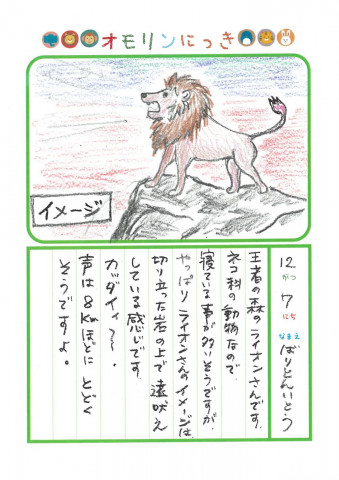 オモリンにっき
イメージ
12がつ7にち なまえ ばりとんいとう
王者の森のライオンさんです。
ネコ科の動物なので、
寝ている事が多いそうですが、
やっぱりライオンさんのイメージは
切り立った岩の上で遠吠え
している感じです。
カッダイイ〜。
声は8Kmほどにとどく
そうですよ。